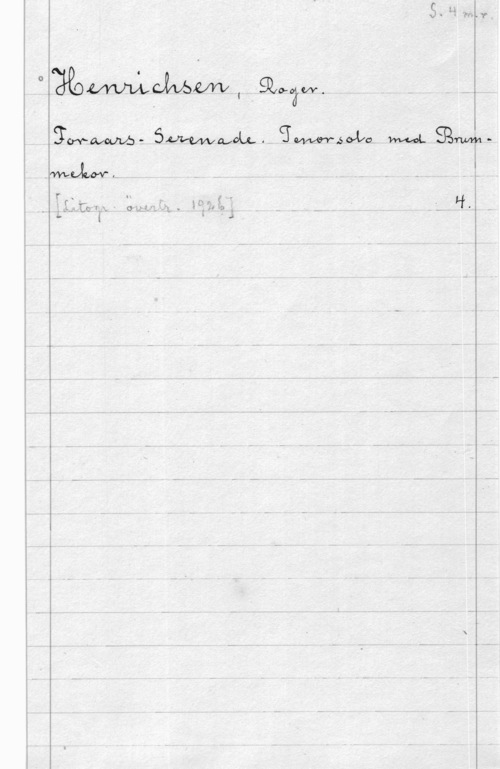 S. 4 m.r.
Henrichsen, Roger.
Foraars- Serenade. Tenorsolo med Brum-
mekor.
[Litogr. överfr. 1926] 4.